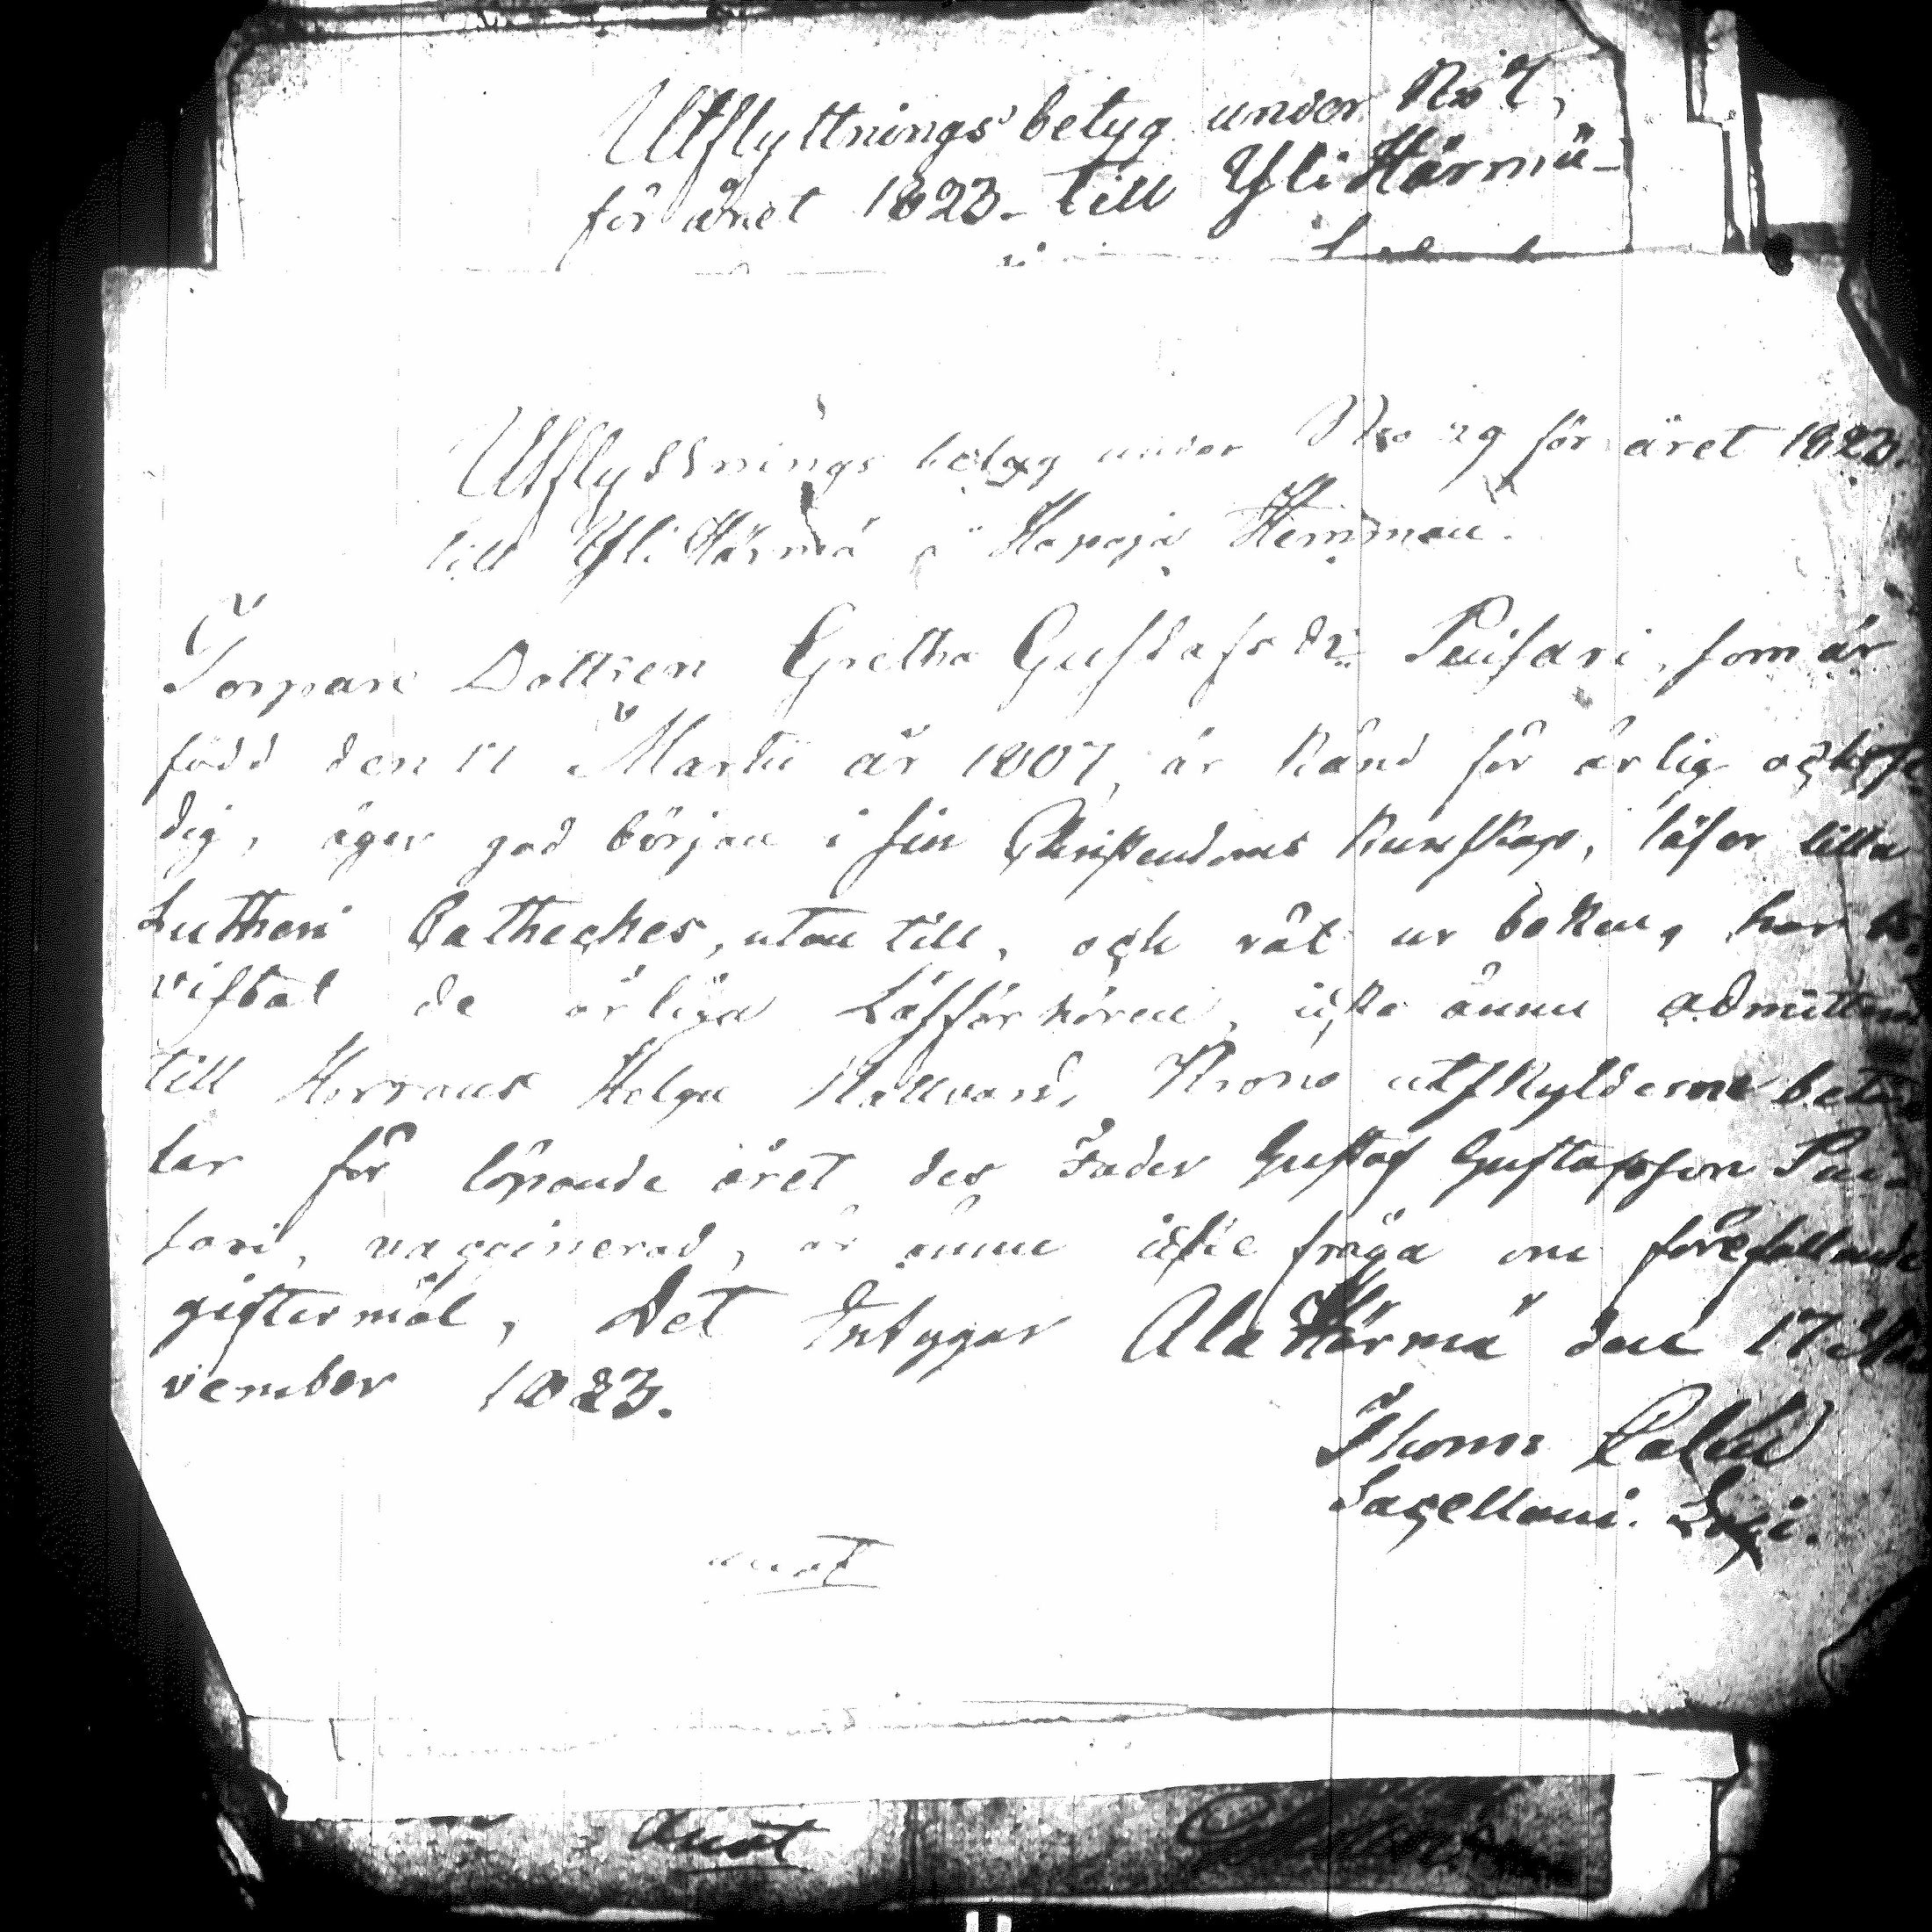 Utflyttnings betyg under No 7,
för året 1823. till Yli Härmä
Utflyttnings betyg under No 29 för året 1823.
till Yli Härmä å Hapoja Hemman.
Torpare Dottren Gretha Gustafs dr. Peisari, som är
född den 11 Martii år 1807, är känd för ärlig och
dig, äger god början i sin Christendoms kunskap, läser lilla
Lutheri Catheches, utan till, och rät ur boken, har be
vistat de årliga Läsförhören, icke ännu admitterad
till Herrans Helga Nattvard, Krono utskylderne beta
lar för löpande året des Fader Gustaf Gustafsson Pei-
sari, vaccinerad, är ännu icke fråga om förefallande
giftermål, Det Intygar Ala Härmä den 17 No
vember 1823.
Thoms
Sacellani. Loci.